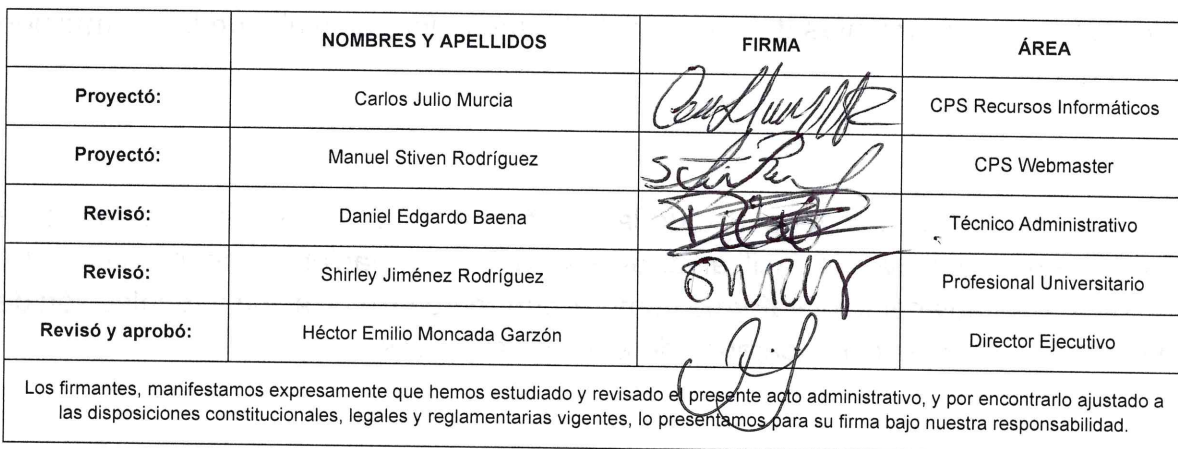 NOMBRES Y APELLIDOS FIRMA ÁREA
Proyectó: Carlos Julio Murcia CPS Recursos Informáticos
Proyectó: Manuel Stiven Rodríguez CPS Webmaster
Revisó: Daniel Edgardo Baena Técnico Administrativo
Revisó: Shirley Jiménez Rodríguez Profesional Universitario
Revisó y aprobó: Héctor Emilio Moncada Garzón Director Ejecutivo
Los firmantes, manifestamos expresamente que hemos estudiado y revisado el presente acto administrativo, y por encontrarlo ajustado a
las disposiciones constitucionales, legales y reglamentarias vigentes, lo presentamos para su firma bajo nuestra responsabilidad.